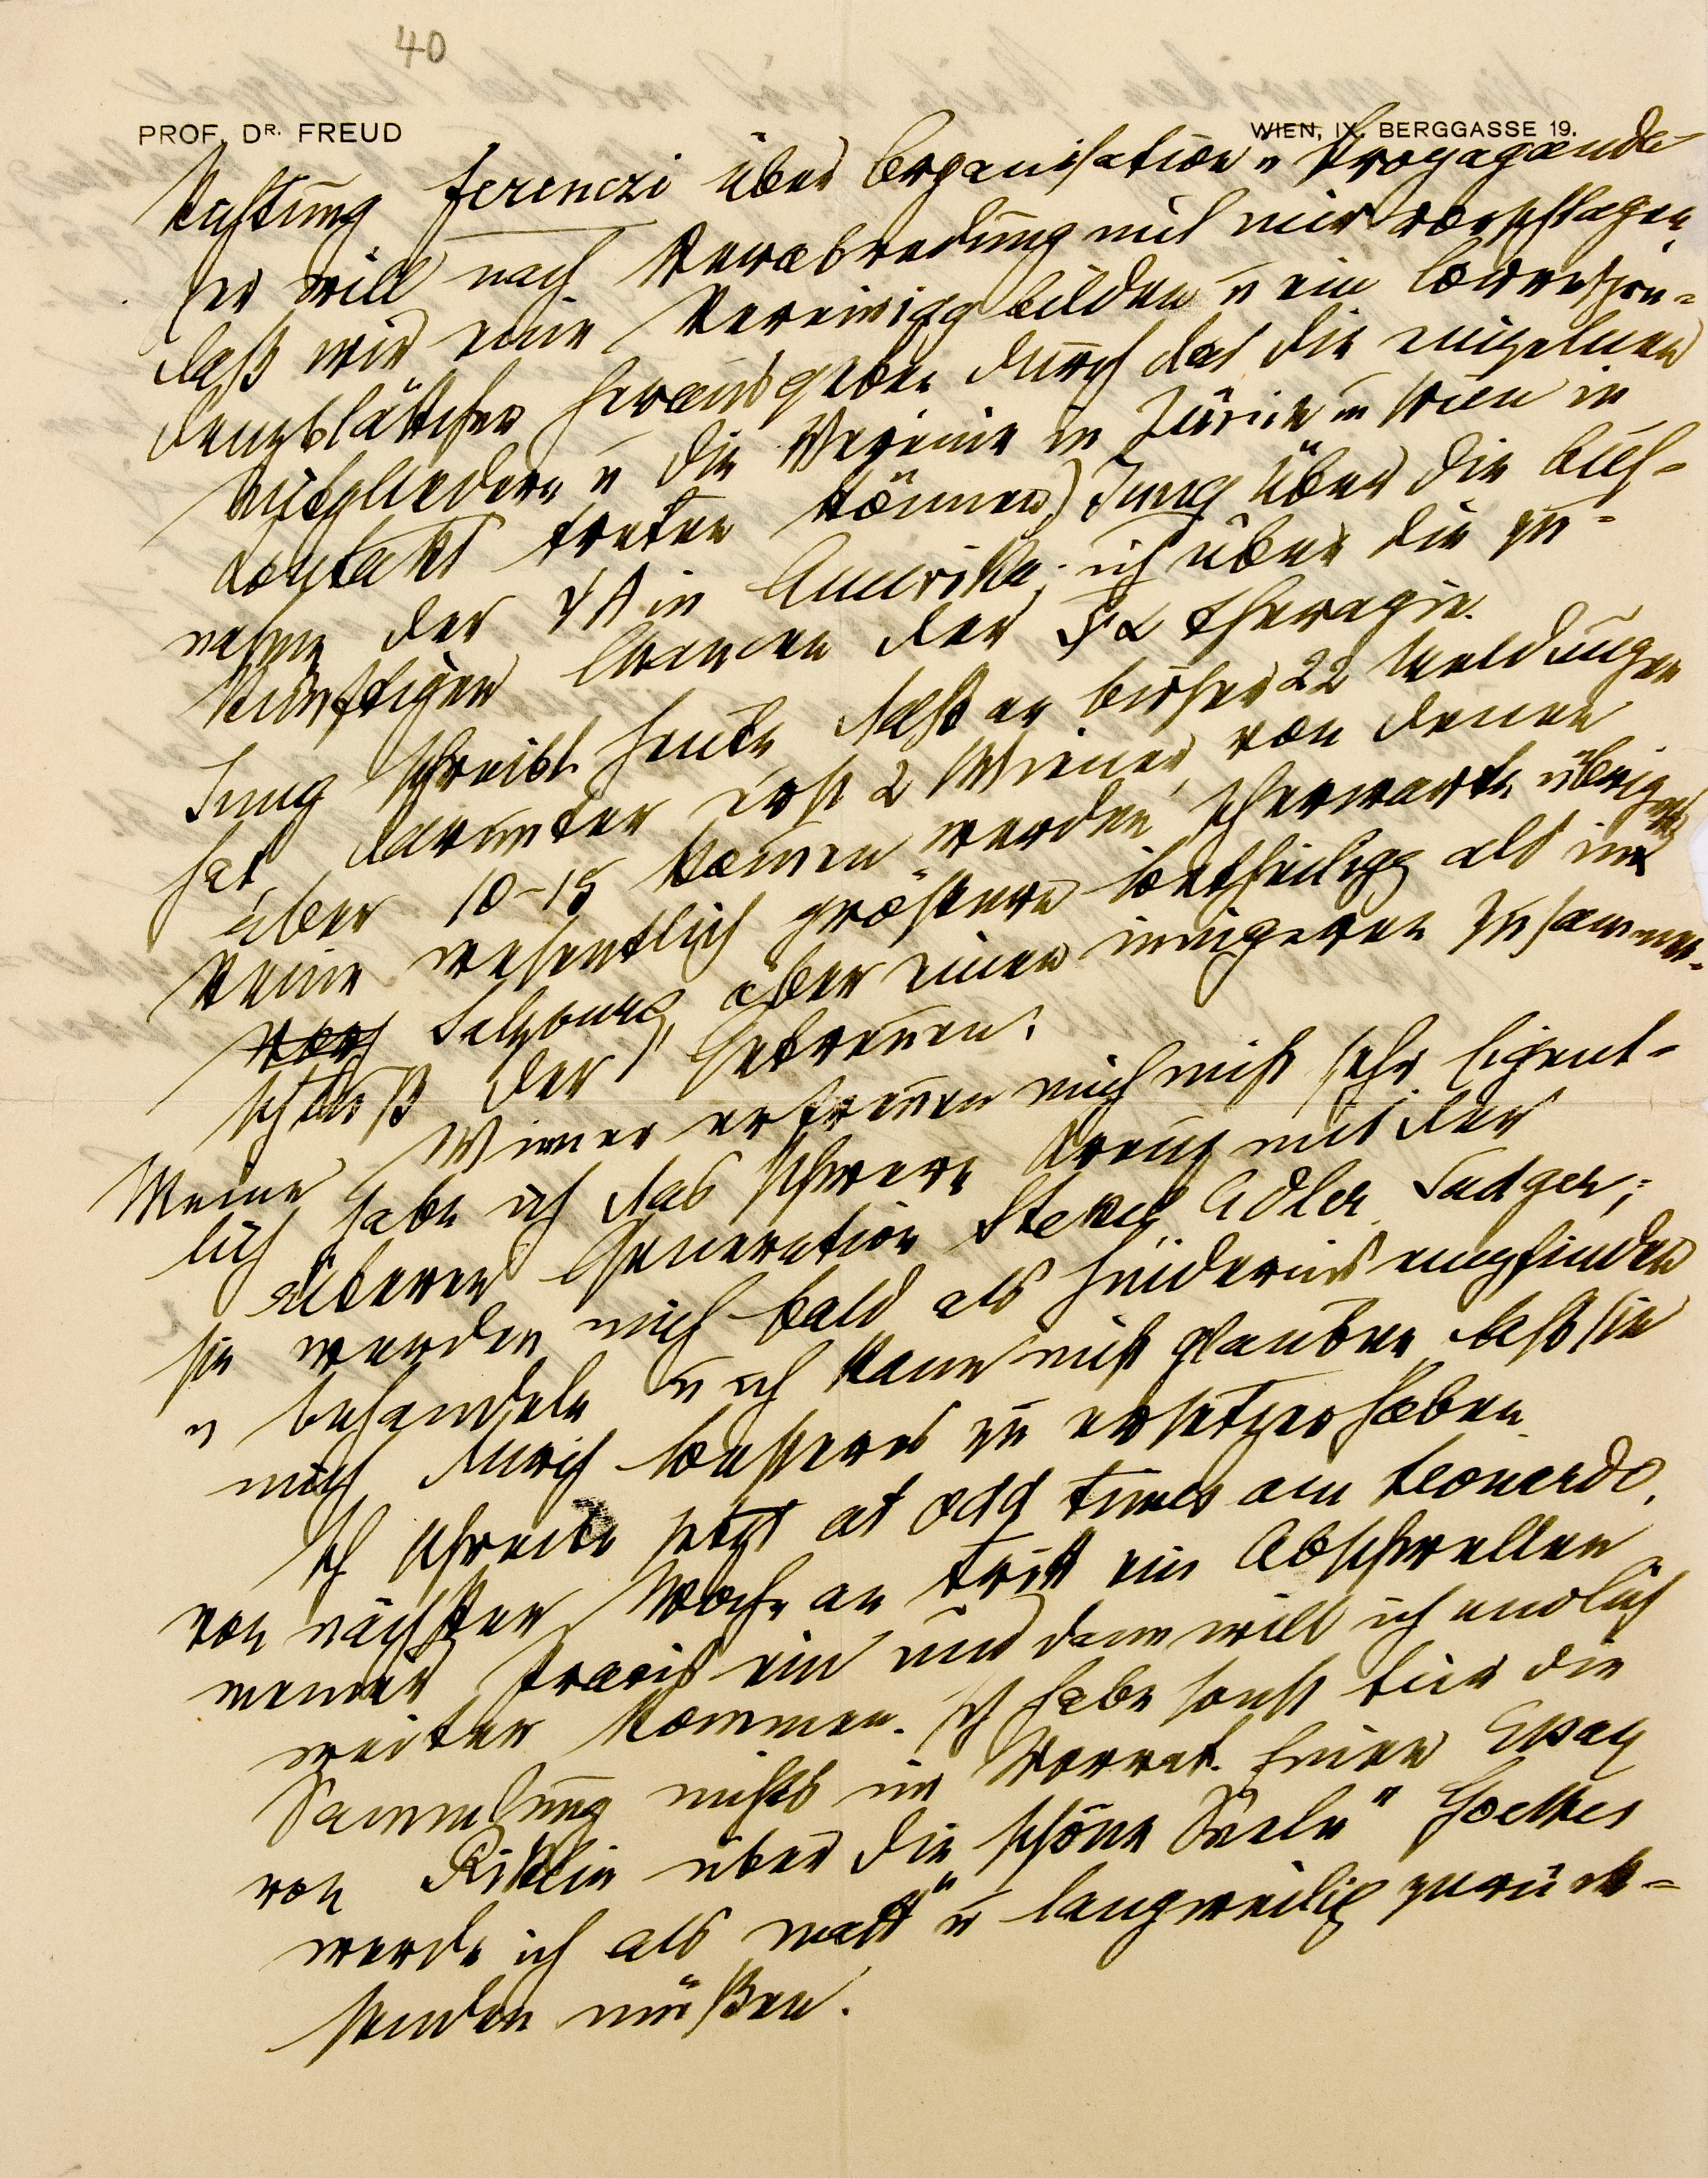 40
PROF. DR. FREUD WIEN, IX. BERGGASSE 19.
Ferenczi über Organisation u Propaganda
(er will nach Verabredung mit mir vorschlagen,
daß wir eine Vereinigg bilden u ein Correspon-
denzblättchen herausgeben durch das die einzelnen
Mitglieder u die Vereine in Zürich u Wien in
Contakt treten können) Jung über die Auf-
nahme der ΨA in Amerika; ich über die zu-
künftigen Chancen der ΨA Therapie.
Jung schreibt heute, daß er bisher 22 Meldungen
hat, darunter erst 2 Wiener, von denen
aber 10–15 kommen werden. Ich erwarte übrigens
keine wesentlich größere Betheiligg als in
Salzburg, aber einen innigeren Zusammen-
schluß der „Getreuen“.
Meine Wiener erfreuen mich nicht sehr. Eigent-
lich habe ich das schwere Kreuz mit der
älteren Generation Stekel, Adler, Sadger;
sie werden mich bald als Hindernis empfinden
u behandeln u ich kann nicht glauben, daß sie
mich durch besseres zu ersetzen haben.
Ich schreibe jetzt at odd times am Leonardo.
Von nächster Woche an tritt ein Abschwellen
meiner Praxis ein und dann will ich endlich
weiter kommen. Ich habe sonst für die
Sammlung nichts im Vorrat. Einen Essay
von Riklin über die „schöne Seele“ Goethes
werde ich als matt u langweilig zurück-
senden müßen.